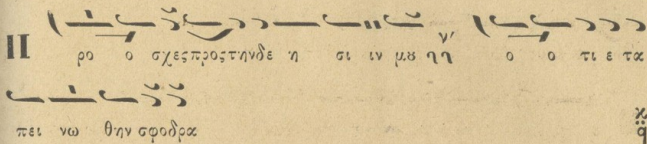 Π ρο ο σχες προς την δε η σι ιν μȣ ηη ο ο τι ε τα
πει νω θην σφο δρα